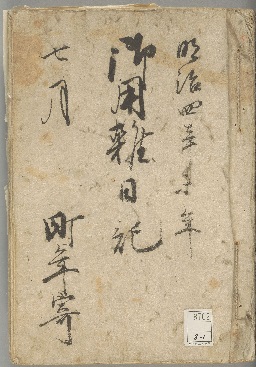 明治四辛未年
御用雑日記
七月
町年寄
8702
8-1